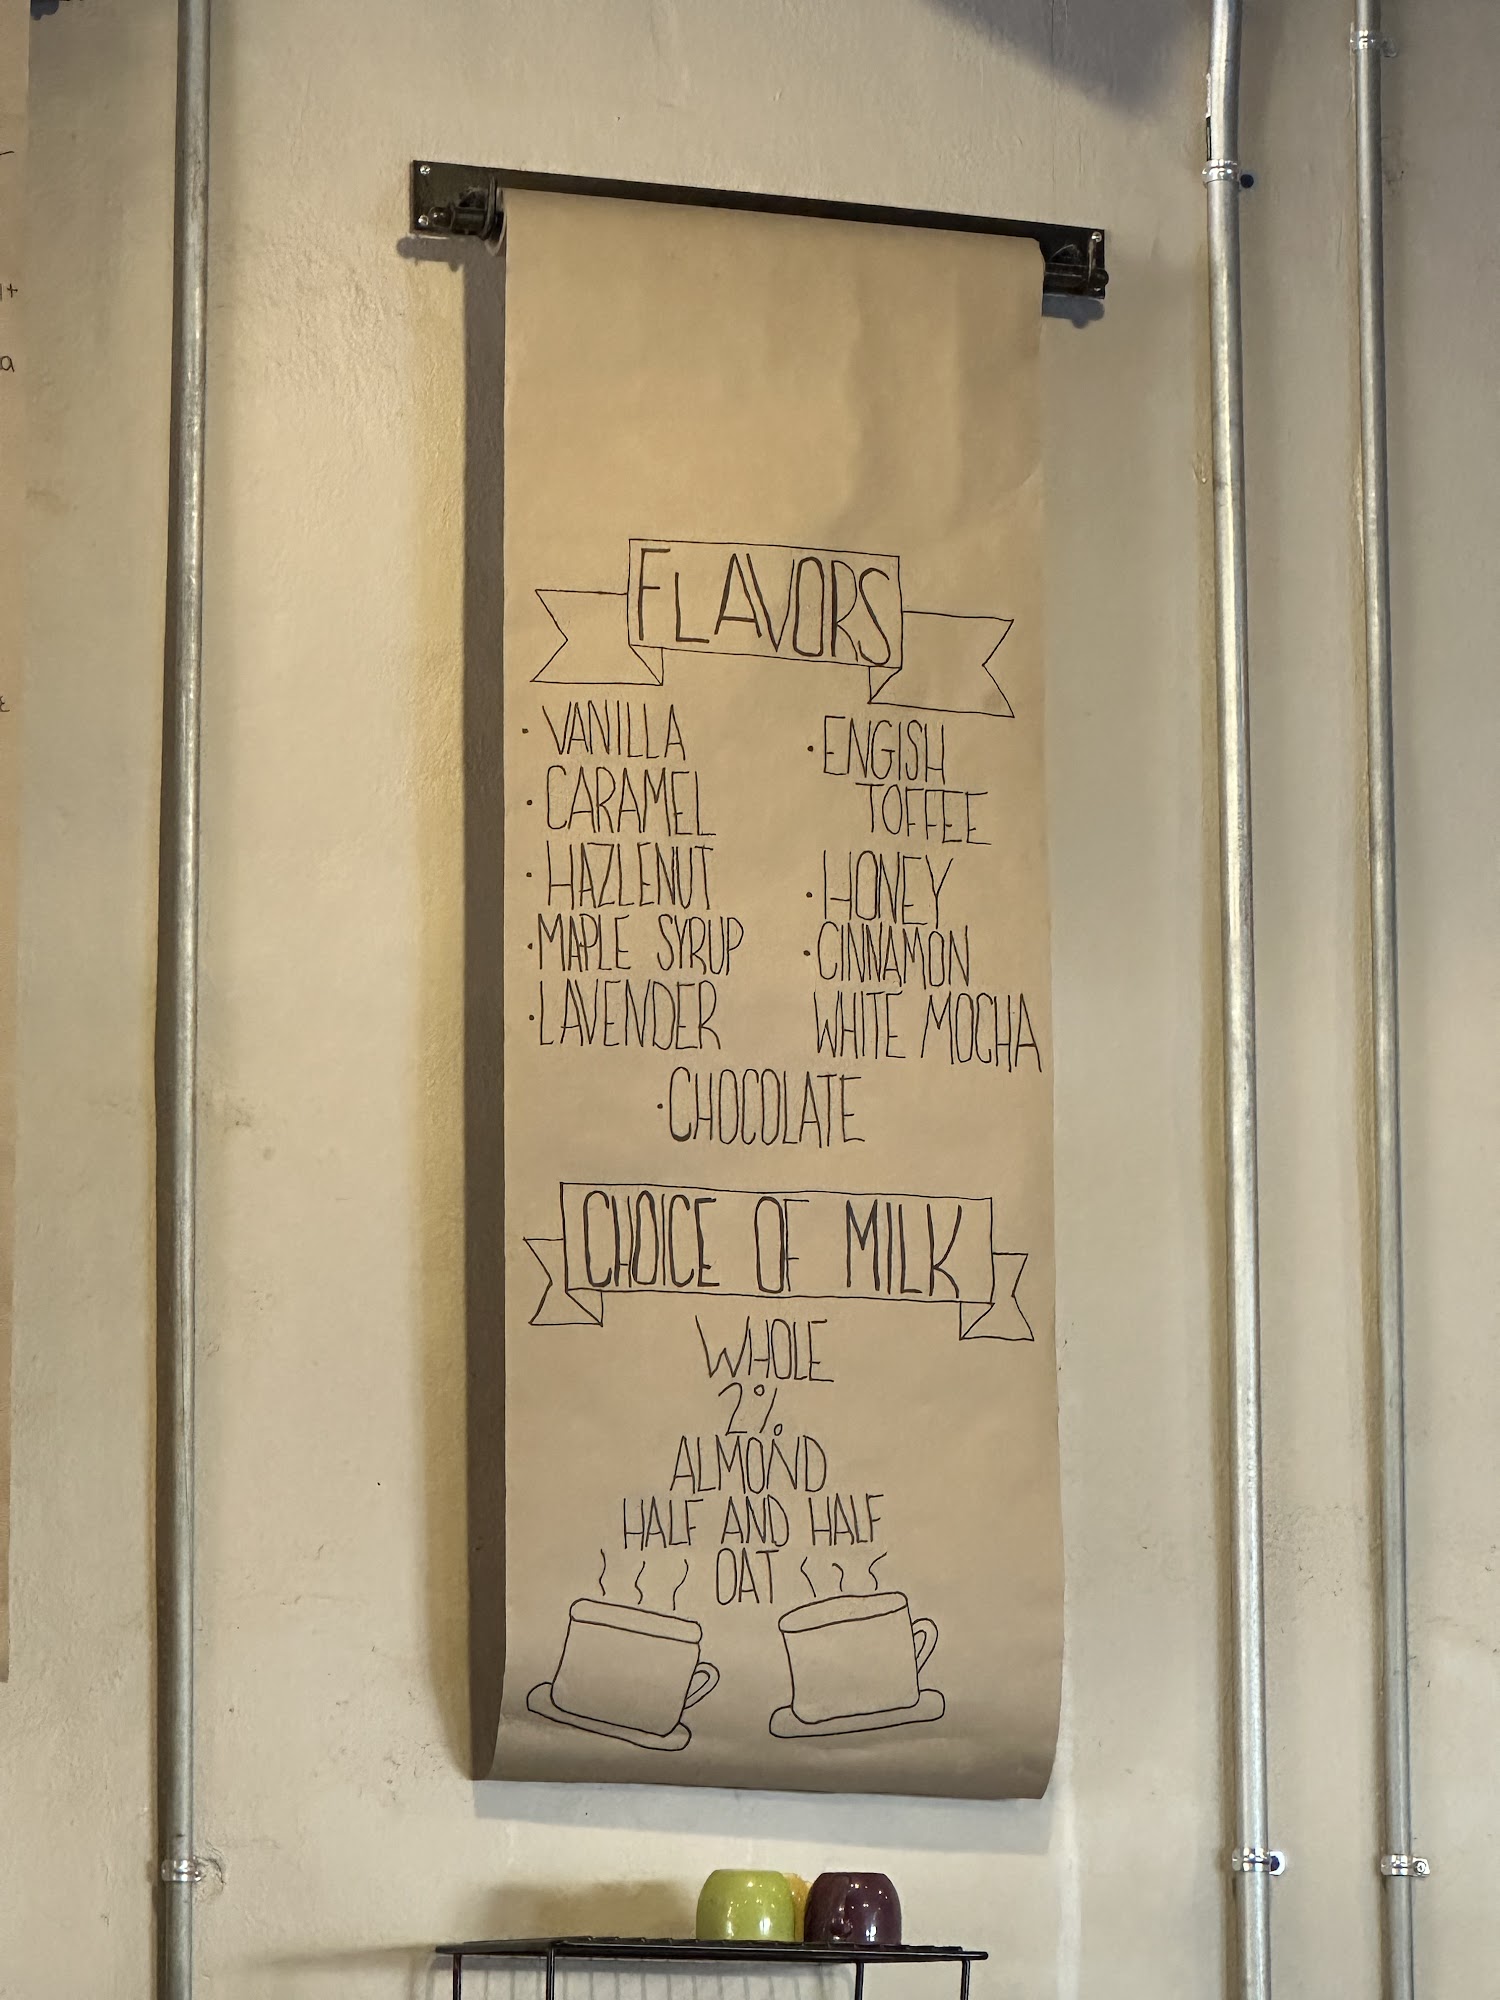 FLAVORS
· VANILLA
· CARAMEL
· HAZLENUT
· MAPLE SYRUP
· LAVENDER
· ENGISH
TOFFEE
· HONEY
· CINNAMON
WHITE MOCHA
· CHOCOLATE
CHOICE OF MILK
WHOLE
2%
ALMOND
HALF AND HALF
OAT